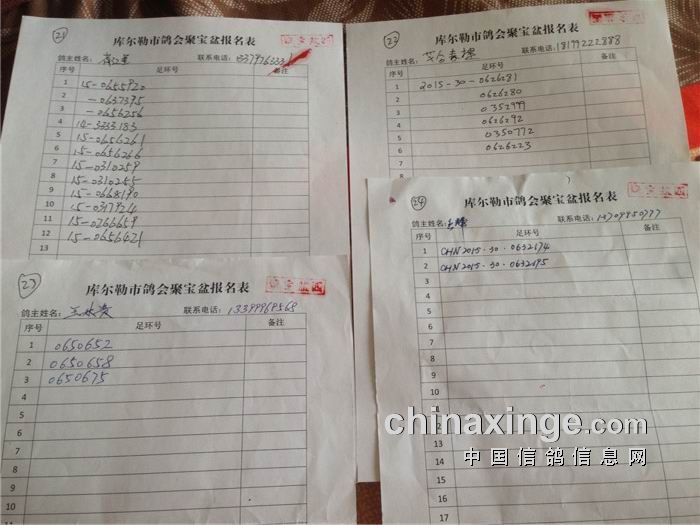 21
库尔勒市鸽会聚宝盆报名表
鸽主姓名:
联系电话:
序号 足环号 备注
1 15-0655920
2 -0637395
3 -0656256
4 14-3333183
5 15-0656261
6 15-0656266
7 15-0310259
8 15-0310255
9 15-0668190
10 15-0317924
11 15-0766659
12 15-0656421
13
22
库尔勒市鸽会聚宝盆报名表
鸽主姓名:
联系电话: 18199222888
序号 足环号 备注
1 2015-30-0626281
2 0626280
3 0352999
4 0626292
5 0350772
6 0626223
7
8
9
23
库尔勒市鸽会聚宝盆报名表
鸽主姓名: 王
联系电话: 13399969568
序号 足环号 备注
1 0650652
2 0650658
3 0650675
4
5
6
7
8
9
10
11
24
库尔勒市鸽会聚宝盆报名表
鸽主姓名:
联系电话: 13709950777
序号 足环号 备注
1 CHN2015-30-0632174
2 CHN2015-30-0632195
3
4
5
6
7
8
9
10
11
12
13
14
15
16
17
chinaxinge.com
中国信鸽信息网